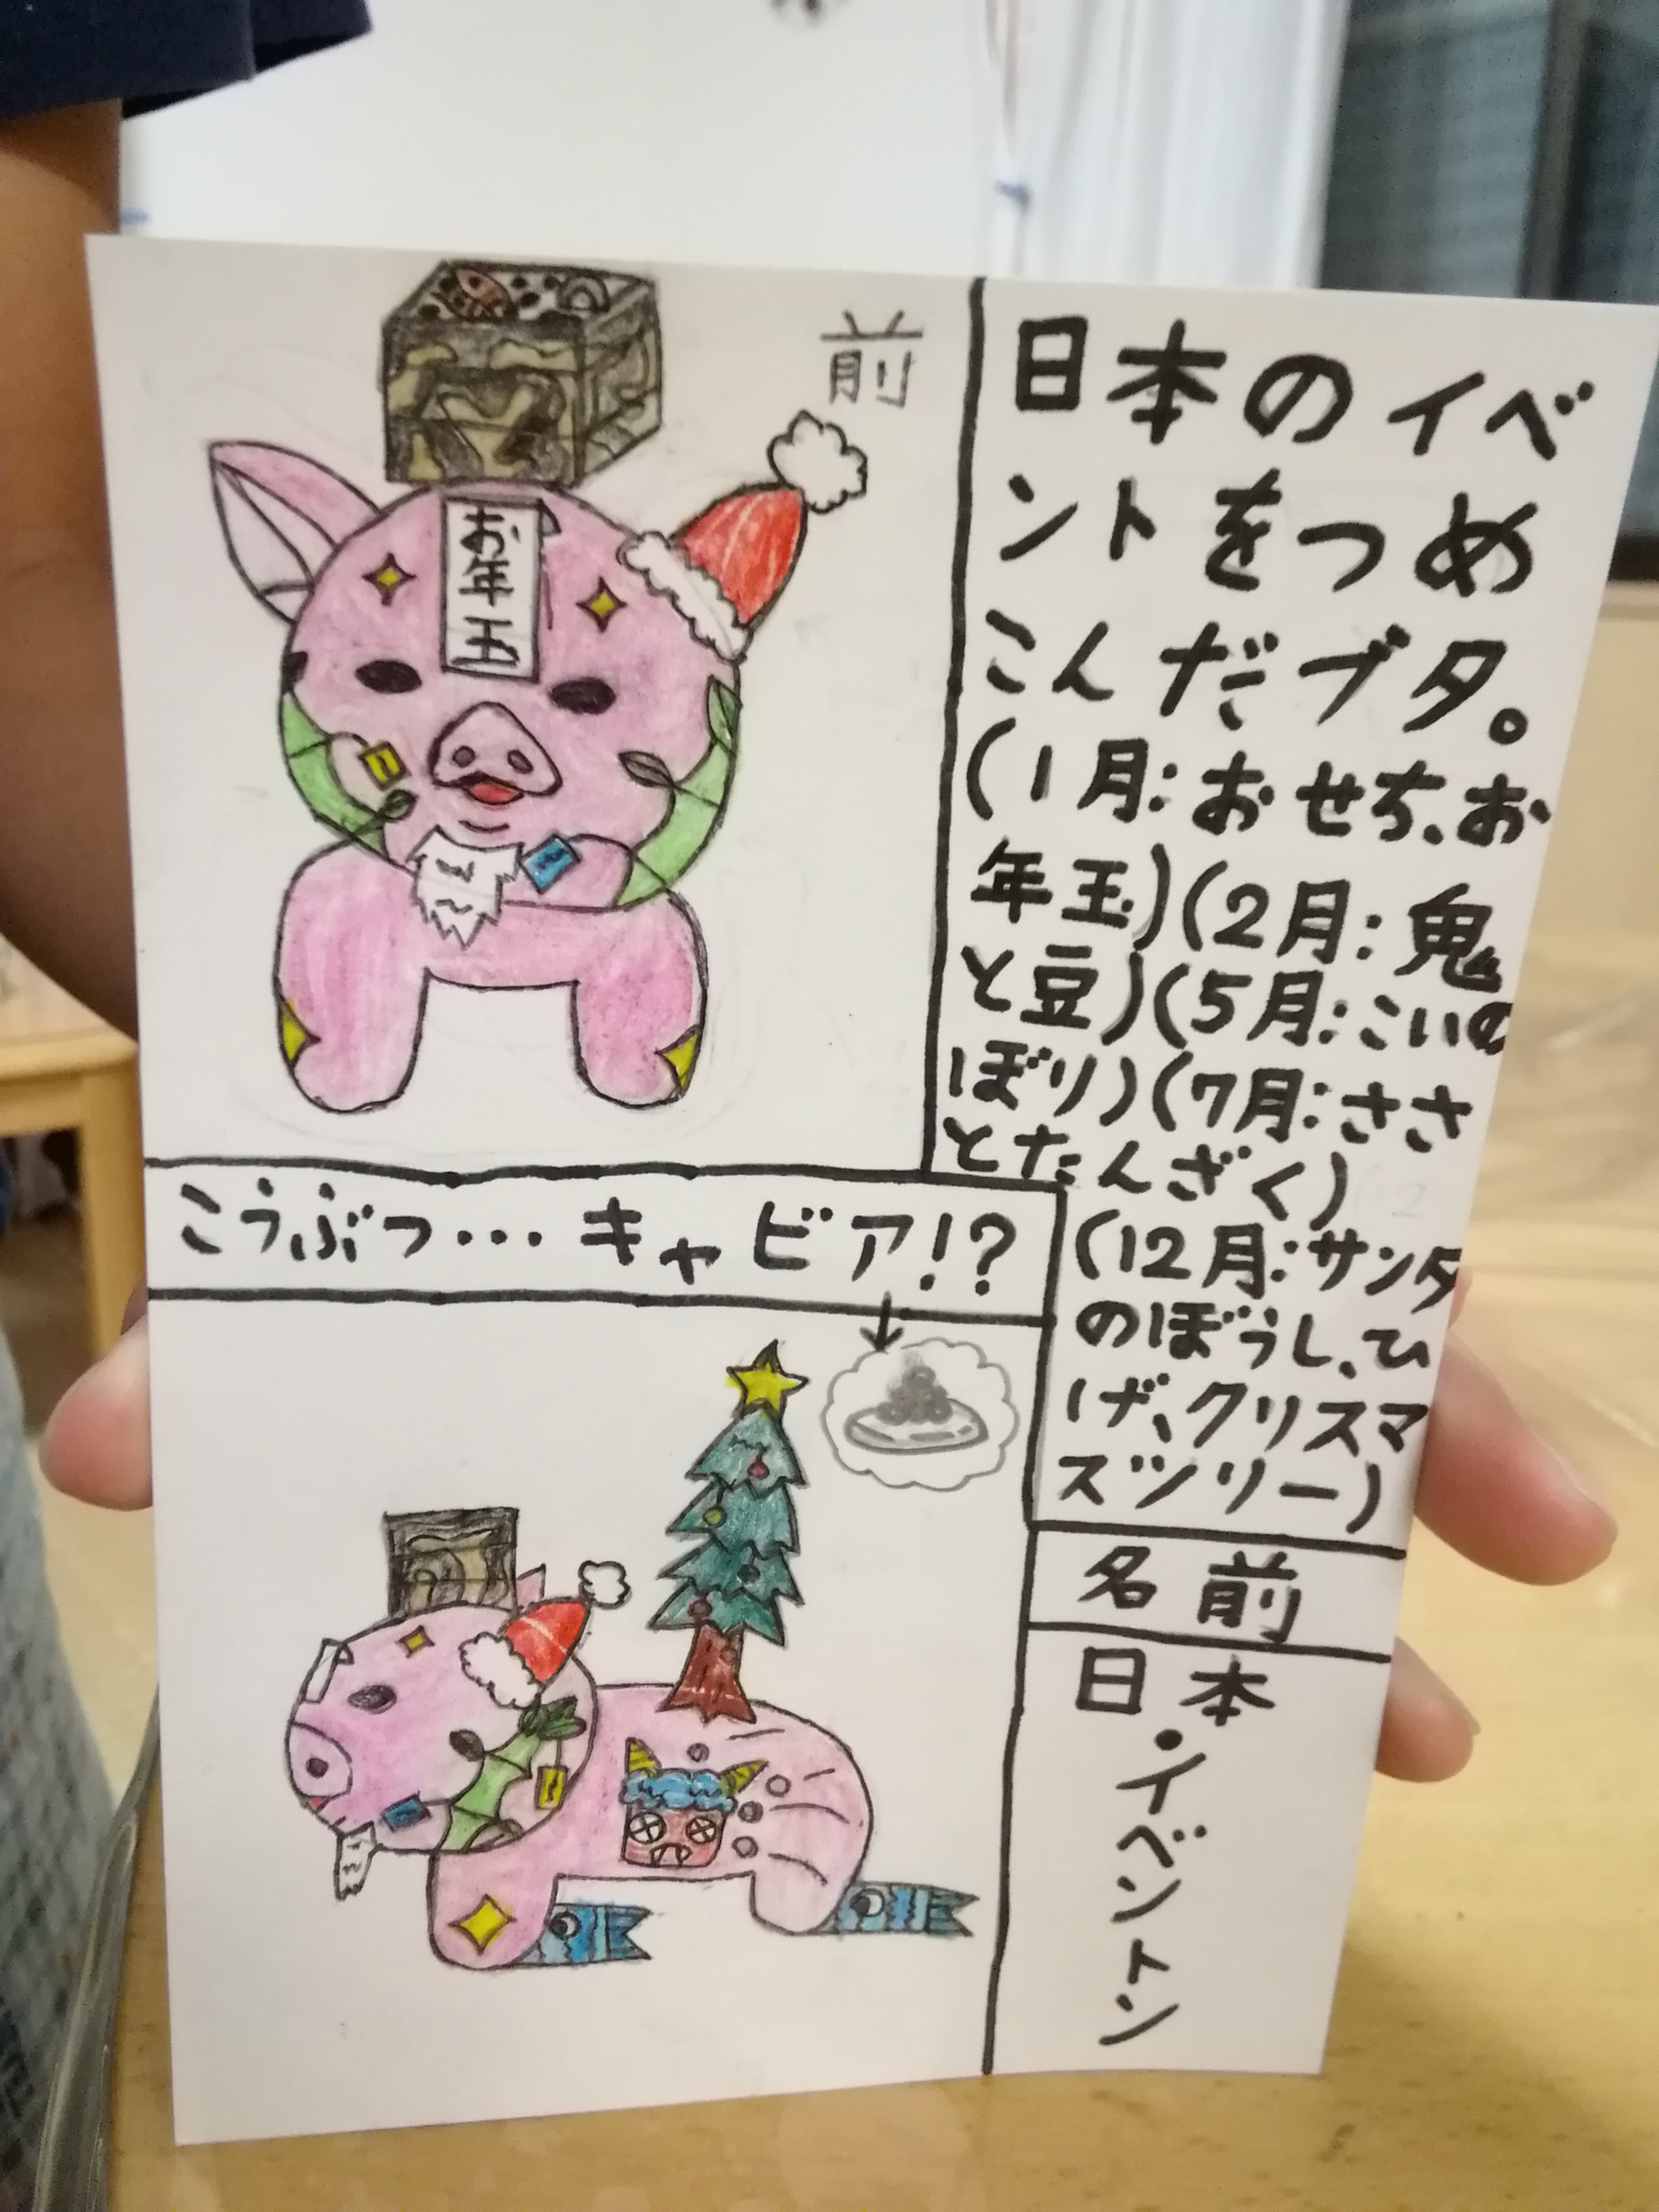 前
お年玉
日本のイベ
ントをつめ
こんだブタ。
(1月:おせち、お
年玉)(2月:鬼
と豆)(5月:こいの
ぼり)(7月:ささ
とたんざく)
(12月:サンタ
のぼうし、ひ
げ、クリスマ
スツリー)
こうぶつ…キャビア!?
名前
日本
・イベントン